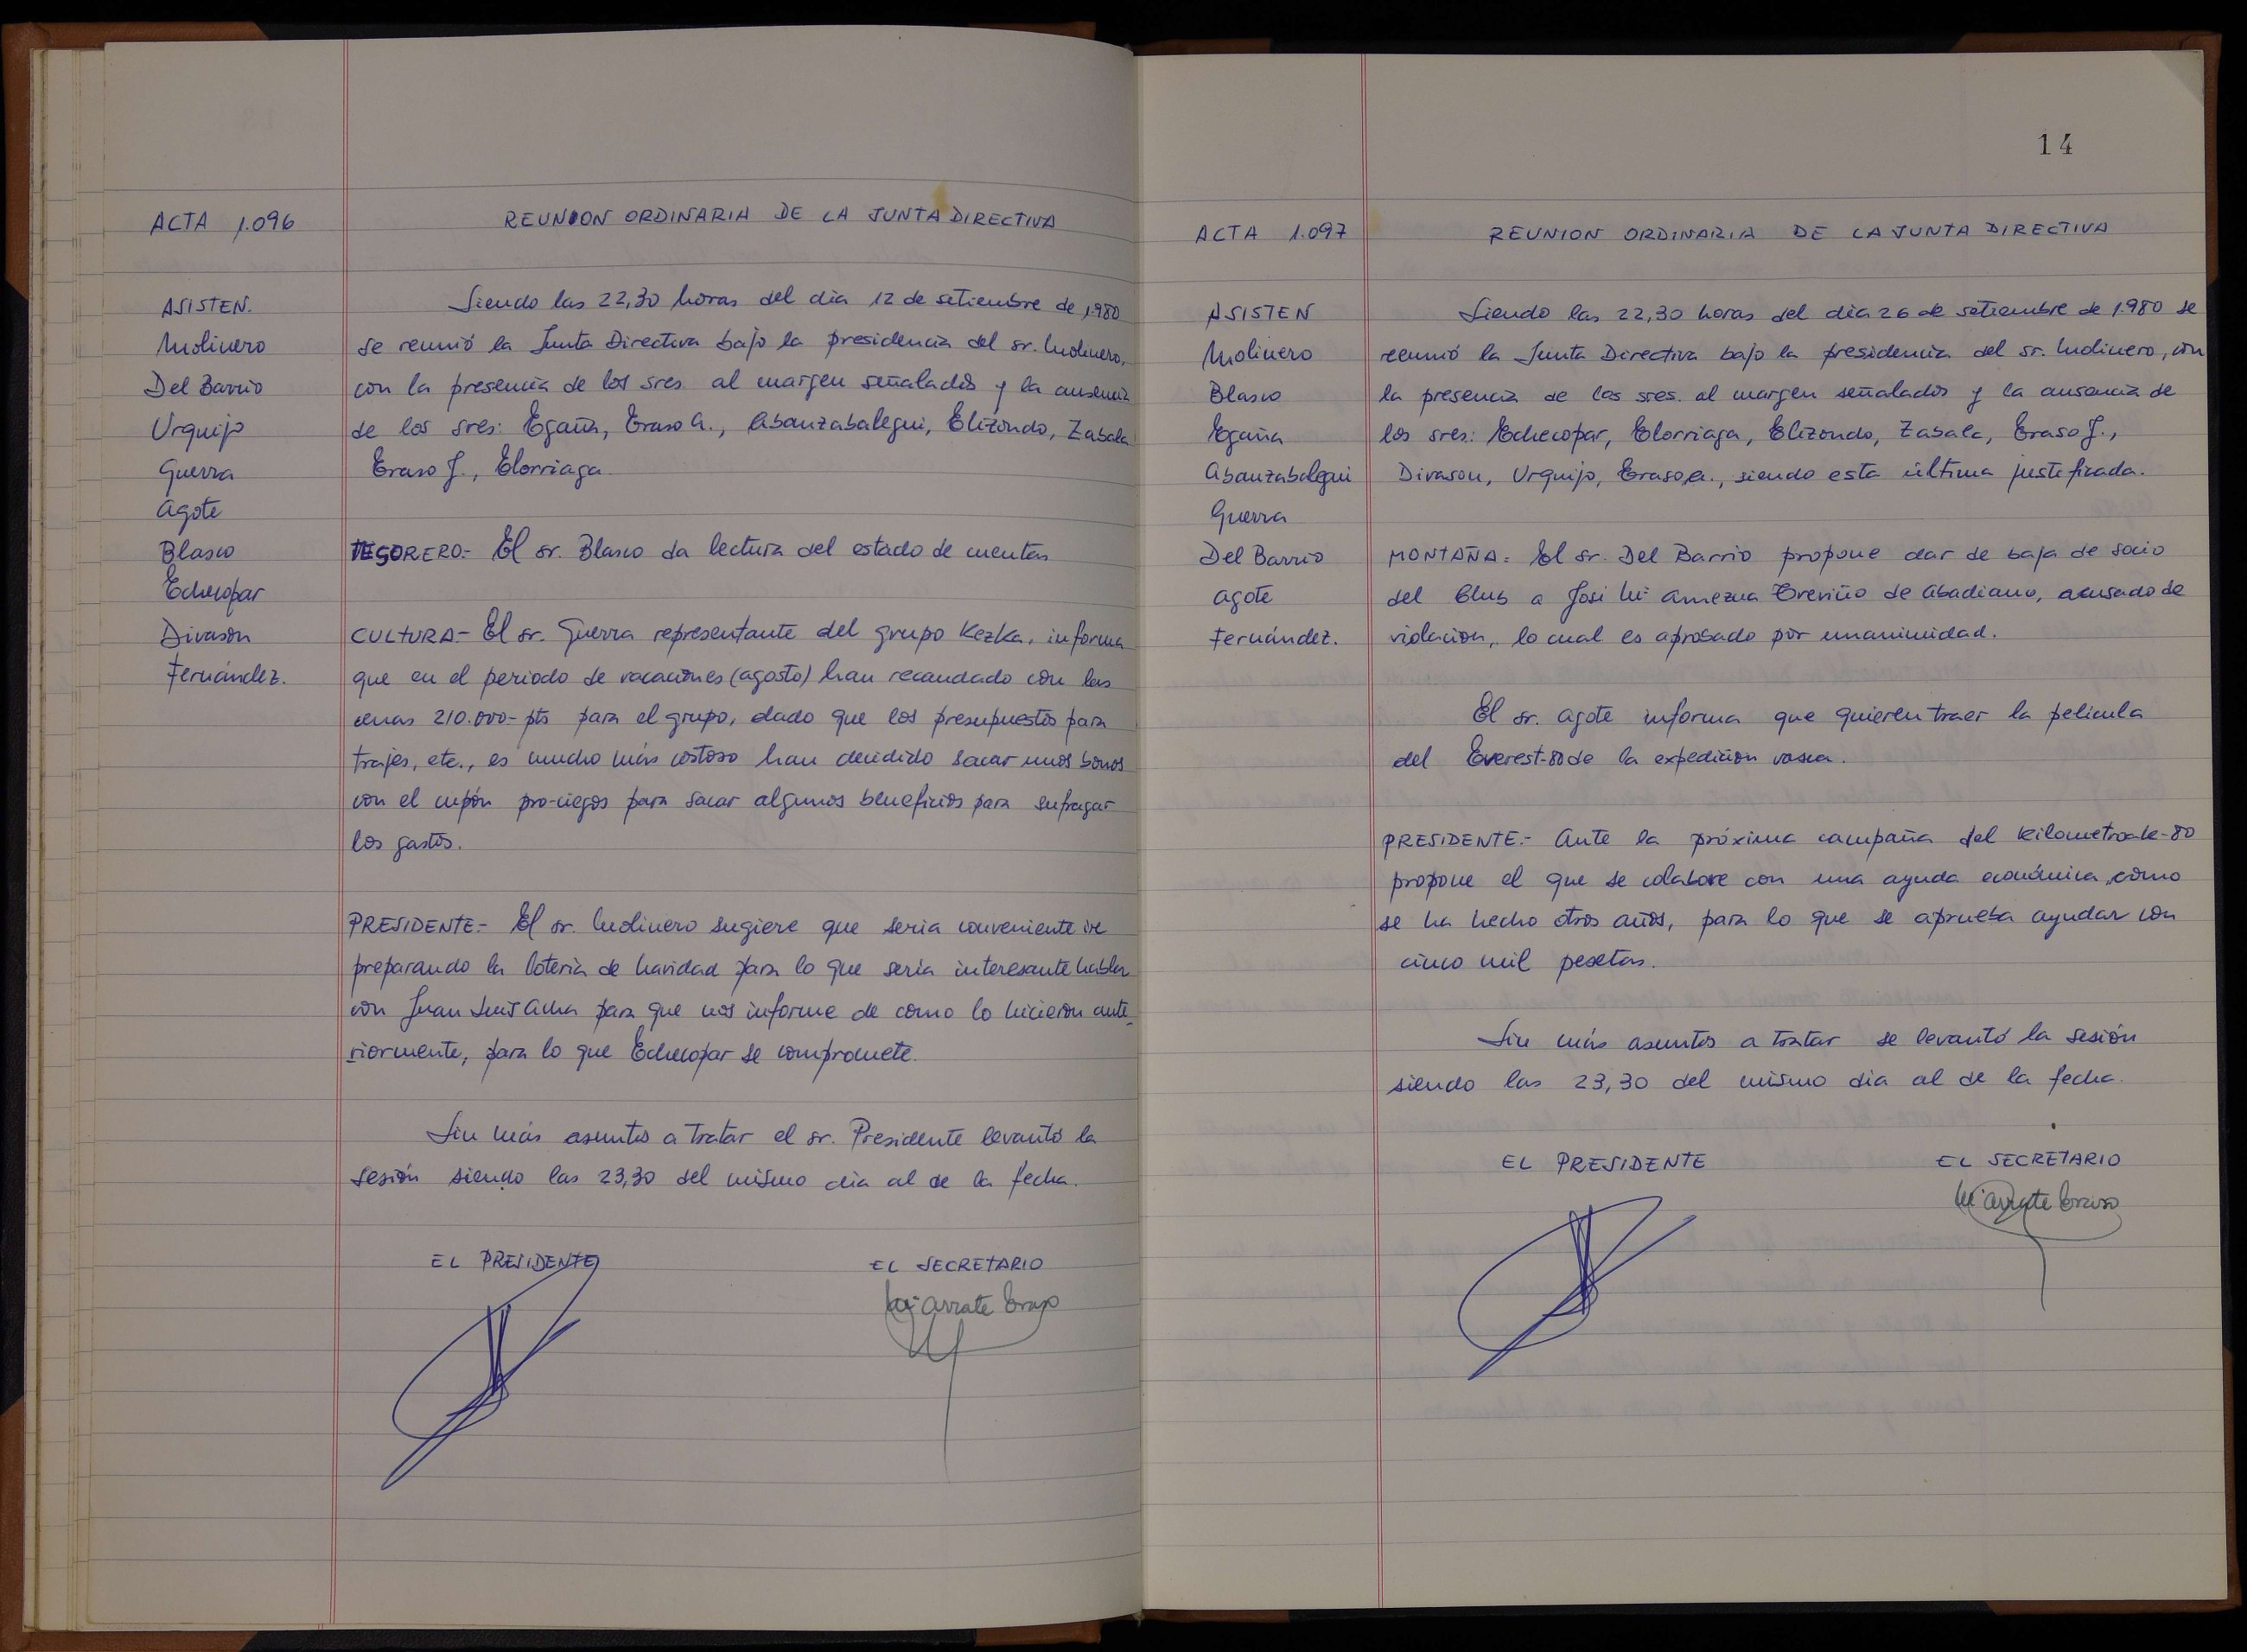 ACTA 1.096
REUNION ORDINARIA DE LA JUNTA DIRECTIVA
ASISTEN.
Molinero
Del Barrio
Urquijo
Guerra
Agote
Blasco
Echecopar
Divasón
Fernández.
Siendo las 22,30 horas del dia 12 de setiembre de 1.980
se reunió la Junta Directiva bajo la presidencia del sr. Molinero,
con la presencia de los sres. al margen señalados y la ausencia
de los sres: Egaña, Eraso A., Abanzabalegui, Elizondo, Zabala
Eraso J., Elorriaga.
TESORERO.- El sr. Blasco da lectura del estado de cuentas
CULTURA.- El sr. Guerra representante del grupo Kezka, informa
que en el periodo de vacaciones (agosto) han recaudado con las
cenas 210.000.- pts para el grupo, dado que los presupuestos para
trajes, etc., es mucho más costoso han decidido sacar unos bonos
con el cupón pro-ciegos para sacar algunos beneficios para sufragar
los gastos.
PRESIDENTE.- El sr. Molinero sugiere que seria conveniente ir
preparando la loteria de navidad para lo que seria interesante hablar
con Juan Luis Acha para que nos informe de como lo hicieron ante-
riormente, para lo que Echecopar se compromete.
Sin más asuntos a tratar el sr. Presidente levantó la
sesión siendo las 23,30 del mismo dia al de la fecha.
EL PRESIDENTE EL SECRETARIO
Mª Arrate Eraso
14
ACTA 1.097
REUNION ORDINARIA DE LA JUNTA DIRECTIVA
ASISTEN
Molinero
Blasco
Egaña
Abanzabalegui
Guerra
Del Barrio
Agote
Fernández.
Siendo las 22,30 horas del dia 26 de setiembre de 1.980 se
reunió la Junta Directiva bajo la presidencia del sr. Molinero, con
la presencia de los sres. al margen señalados y la ausencia de
los sres: Echecopar, Elorriaga, Elizondo, Zabala, Eraso J.,
Divason, Urquijo, Eraso A., siendo esta última justificada.
MONTAÑA.- El sr. Del Barrio propone dar de baja de socio
del Club a José Mª Amezua Treviño de Abadiano, acusado de
violación, lo cual es aprobado por unanimidad.
El sr. Agote informa que quieren traer la pelicula
del Everest-80 de la expedición vasca.
PRESIDENTE.- Ante la próxima campaña del kilometroak-80
propone el que se colabore con una ayuda económica, como
se ha hecho otros años, para lo que se aprueba ayudar con
cinco mil pesetas.
Sin más asuntos a tratar se levantó la sesión
siendo las 23,30 del mismo dia al de la fecha.
EL PRESIDENTE EL SECRETARIO
Mª Arrate Eraso